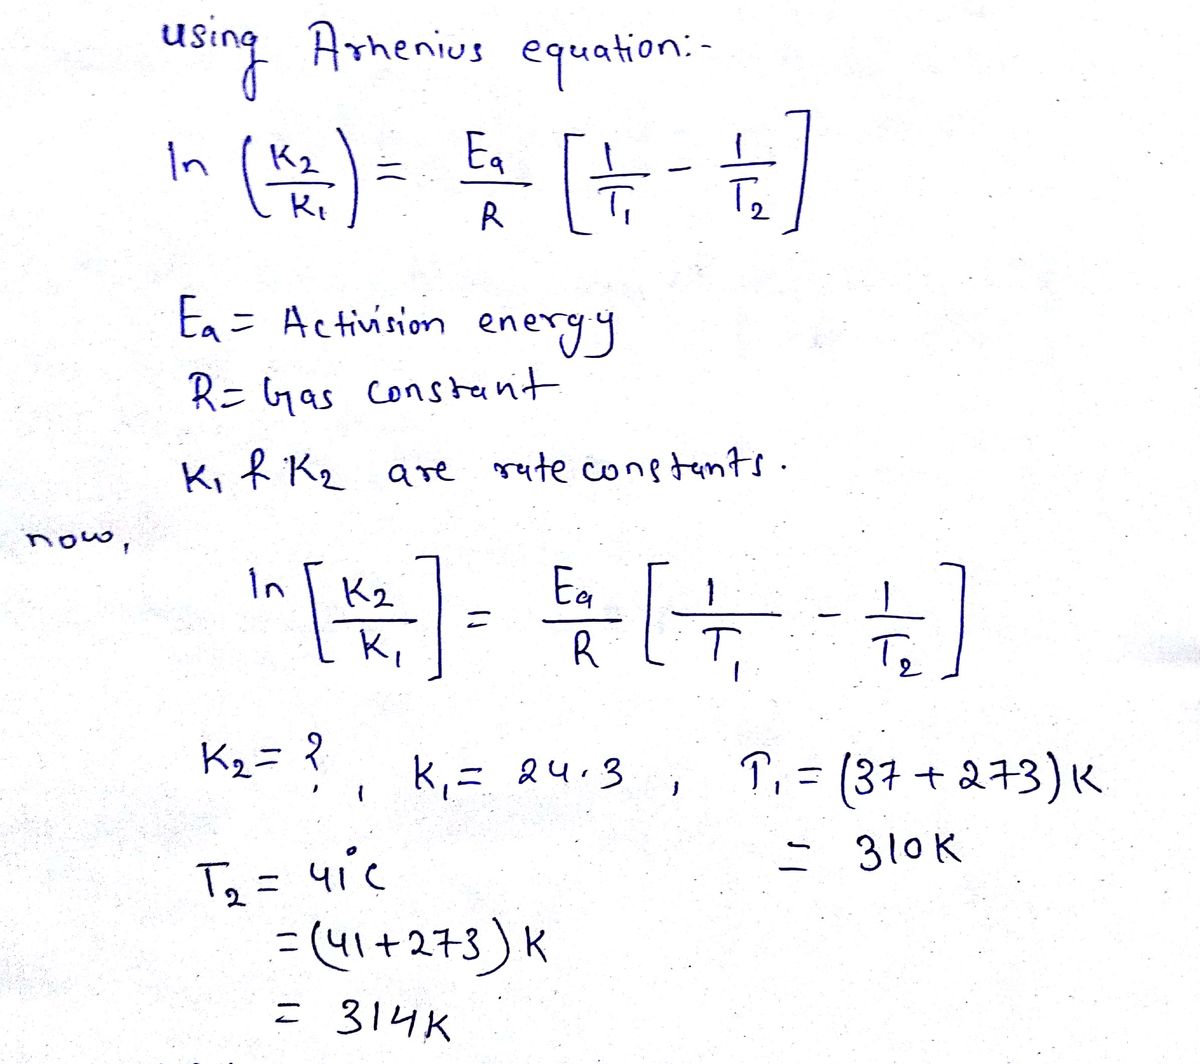 using Arhenius equation:-
ln (K2/K1) = Ea/R [1/T1 - 1/T2]
Ea = Activision energy
R = Gas constant
K1 & K2 are rate constants.
now,
ln [K2/K1] = Ea/R [1/T1 - 1/T2]
K2 = ?, K1 = 24.3, T1 = (37 + 273) K
= 310K
T2 = 41°C
= (41 + 273) K
= 314K